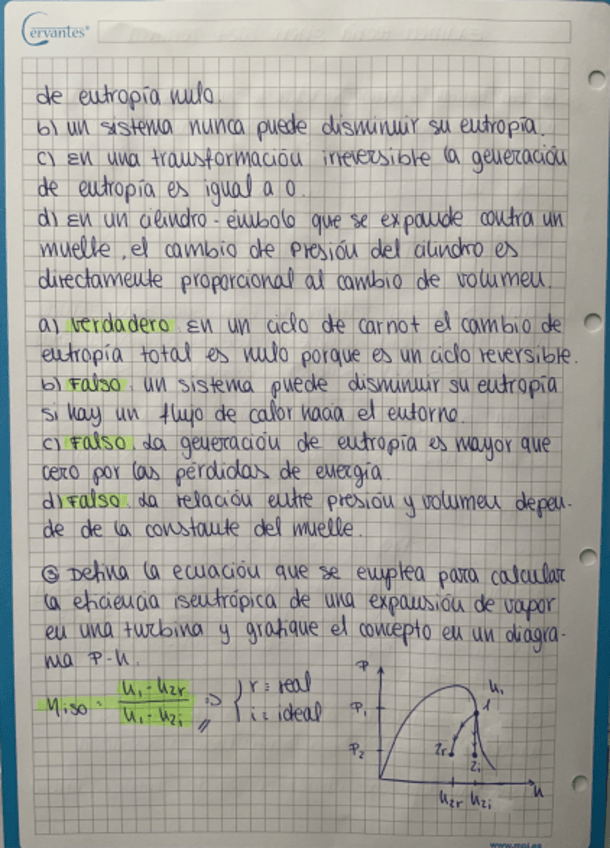 Cervantes®
de eutropía nulo.
b) un sistema nunca puede disminuir su eutropía.
c) En una transformación irreversible la generación
de eutropía es igual a 0.
d) En un cilindro-émbolo que se expande contra un
muelle, el cambio de presión del cilindro es
directamente proporcional al cambio de volumen.
a) verdadero. En un ciclo de carnot el cambio de
eutropía total es nulo porque es un ciclo reversible.
b) Falso. un sistema puede disminuir su eutropía
si hay un flujo de calor hacia el entorno.
c) Falso. La generación de eutropía es mayor que
cero por las pérdidas de energía.
d) Falso. La relación entre presión y volumen depen-
de de la constante del muelle.
③ Defina la ecuación que se emplea para calcular
la eficiencia isentrópica de una expansión de vapor
en una turbina y grafique el concepto en un diagra-
ma P-h.
ηiso = (h1 - h2r) / (h1 - h2i) => { r = real
i = ideal
P
h1
P1
1
P2
2r
2i
h2r h2i
h
www.mpi.es